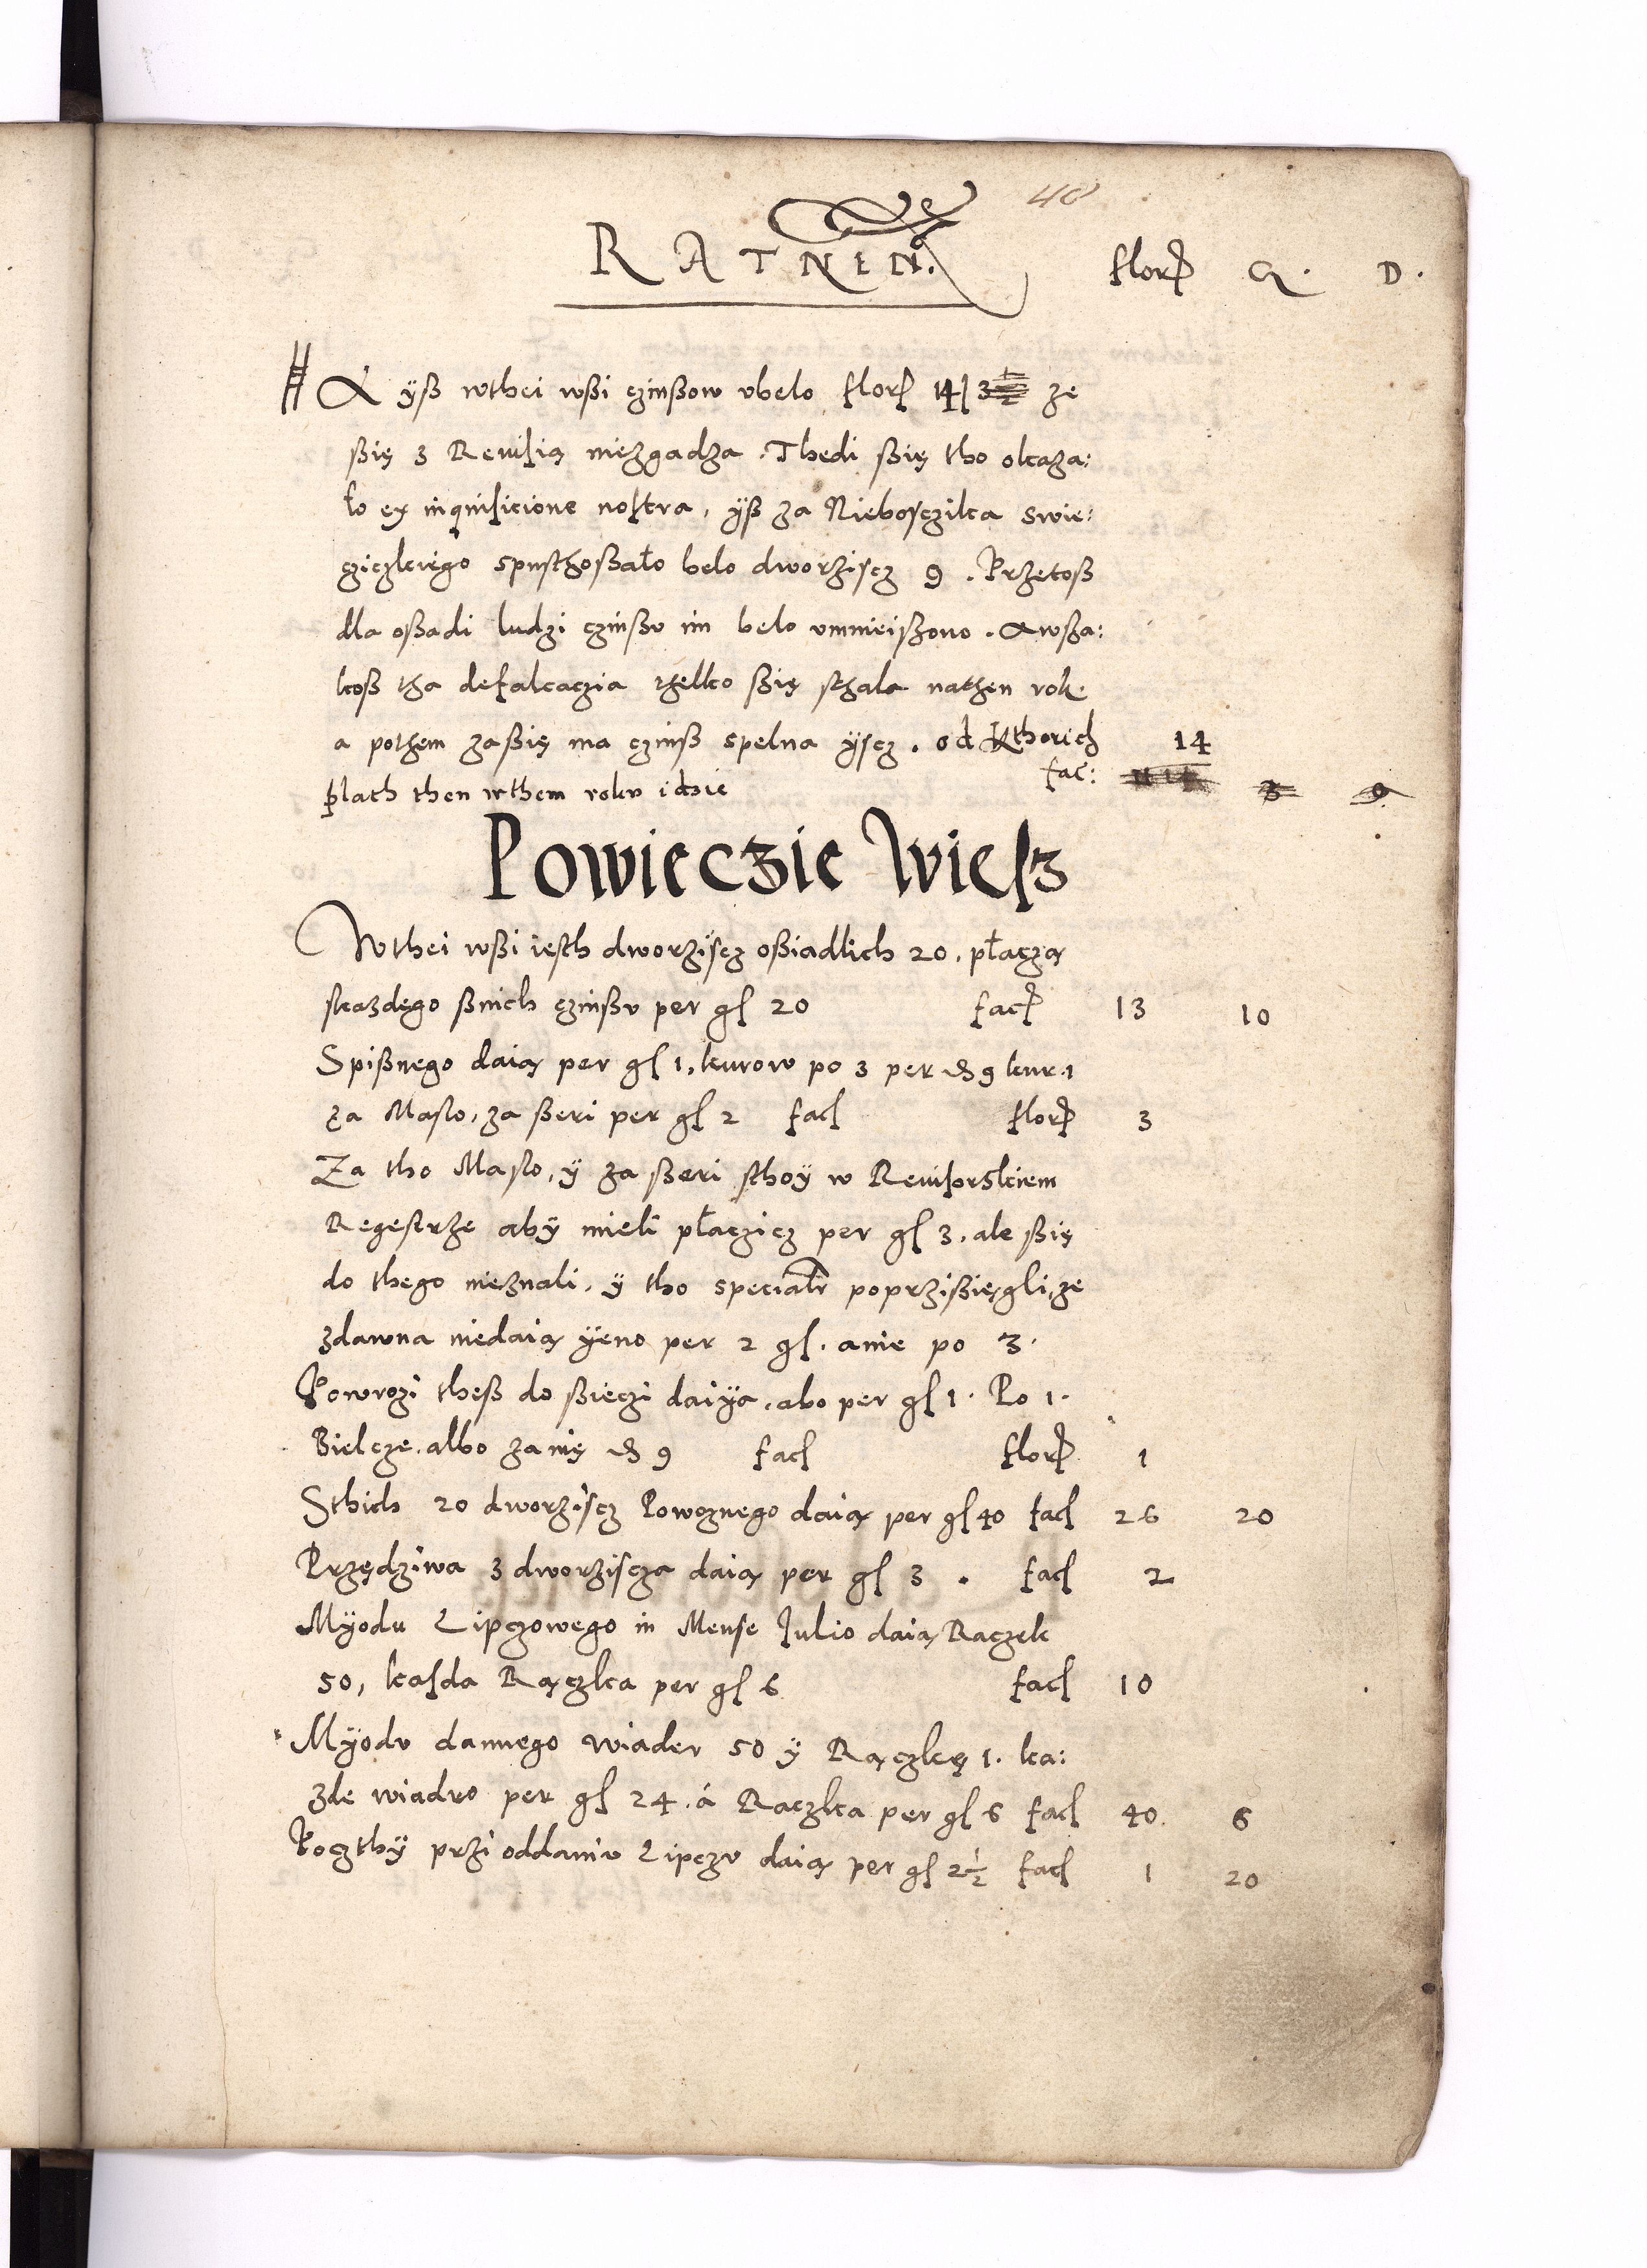 48
RATNEN. flor G. D.
A ÿß wthei wßi czinßow vbelo flor 14 ze
ßię z Reuisią niezgadza. Thedi ßię tho okaza:
ło ex inquisicione nostra, ÿß za Nieboszczika Swie:
cziczkiego spusthoßało belo dworziscz 9. Przetoß
dla oßadi ludzi czinßu im belo vmnieiszono. A wßa:
koß tha defalcaczia thelko ßię sthala nathen rok.
a pothem zaßię ma czinß spelna ÿscz. od Kthorich 14
płath then wthem roku idzie fac: 3 9
Powieczie Wiesz
Wthei wßi iesth dworzÿscz oßiadlich 20. płaczą
skazdego ßnich czinßu per gs 20 fac 13 10
Spißnego daią per gs 1, kurow po 3 per d 9 kur. 1
za Maslo, za ßeri per gs 2 fac flor 3
Za tho Maslo, ÿ za ßeri sthoÿ w Reuisorskiem
Regestrze abÿ mieli płaczicz per gs 3. ale ßię
do thego nieznali, ÿ tho specialr poprzißięgli, ze
zdawna niedaią ÿeno per 2 gs. anie po 3.
Powrozi theß do ßieczi daiÿa, abo per gs 1. Po 1.
Bielcze. albo zanię d 9 fac flor 1
Sthich 20 dworziscz Powoznego daią per gs 40 fac 26 20
Przędziwa z dworziscza daią per gs 3. fac 2
Mÿodu Lipczowego in Mense Julio daią Raczek
50, kasda Rączka per gs 6 fac 10
Mÿodu dannego wiader 50 ÿ Rączkę 1. ka:
zde wiadro per gs 24. á Raczka per gs 6 fac 40. 6
Pocztbÿ przi oddaniu Lipczu daią per gs 2½ fac 1 20